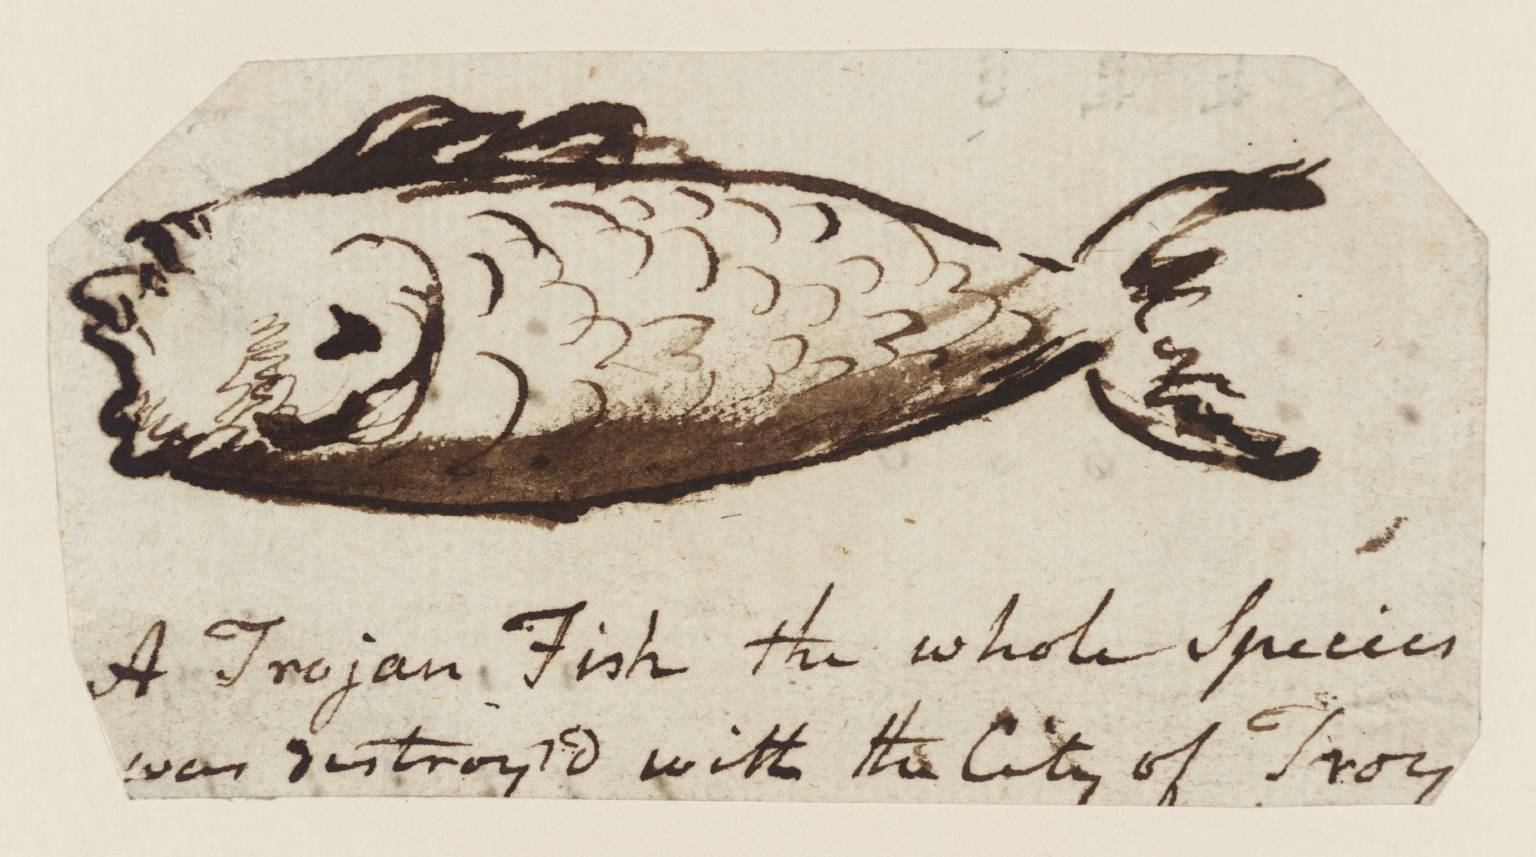 A Trojan Fish the whole Species
was destroy'd with the City of Troy